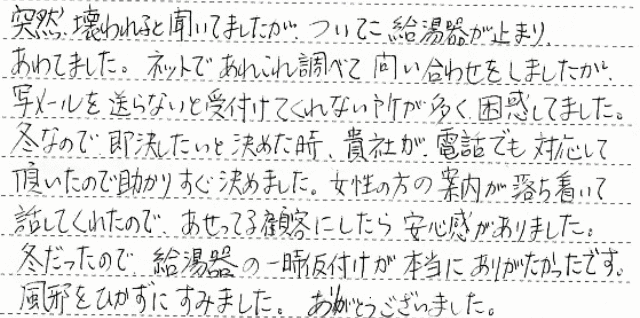 突然、壊われると聞いてましたが、ついに給湯器が止まり、
あわてました。ネットであれこれ調べて問い合わせをしましたが、
写メールを送らないと受付けてくれない所が多く困惑してました。
冬なので即決したいと決めた時、貴社が、電話でも対応して
頂いたので助かりすぐ決めました。女性の方の案内が落ち着いて
話してくれたので、あせってる顧客にしたら安心感がありました。
冬だったので、給湯器の一時仮付けが本当にありがたかったです。
風邪をひかずにすみました。ありがとうございました。